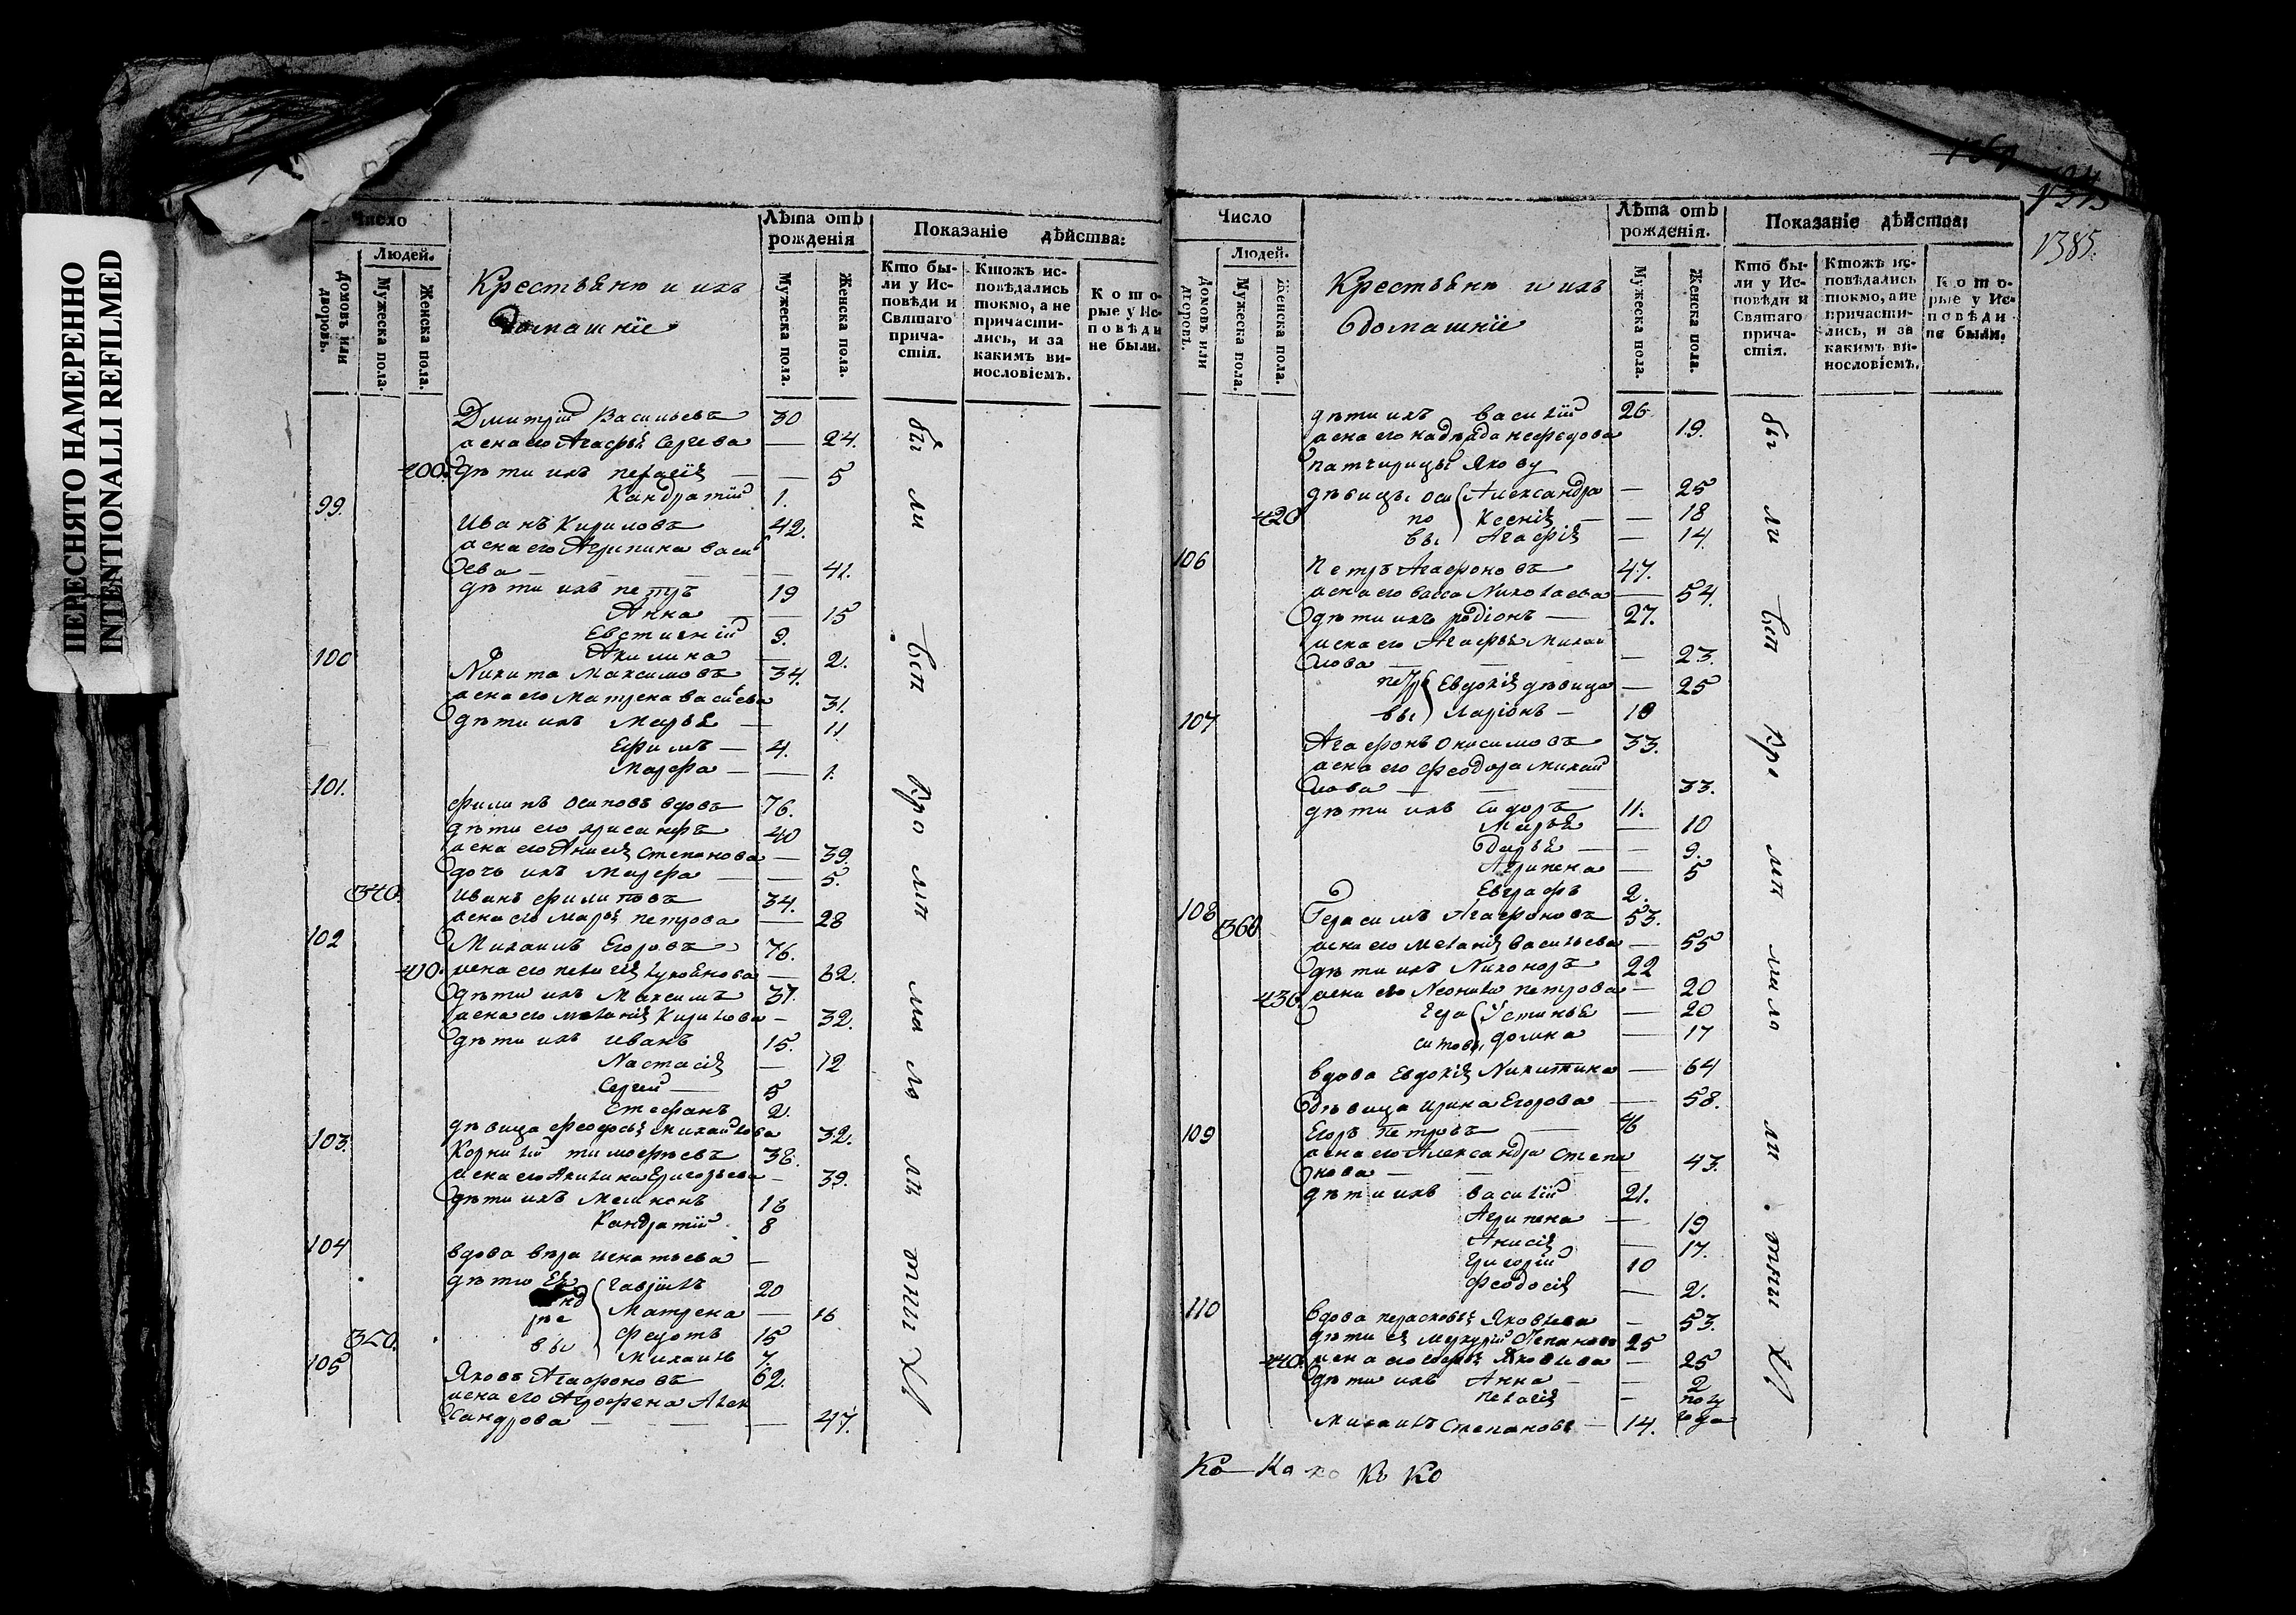 ПЕРЕСНЯТО НАМЕРЕННО
INTENTIONALLI REFILMED
Число
Людей.
Домовъ или дворовъ.
Мужеска пола.
Женска пола.
Крестьяню и ихъ
домашнїе
Лѣта отъ рожденія
Мужеска пола.
Женска пола.
Показаніе дѣйства:
Кто бы-
ли у Ис-
повѣди и
Святаго
прича-
стія.
Ктожъ ис-
повѣдались
токмо, а не
причасти-
лись, и за
какимъ ви-
нословіемъ.
Кото-
рые у Ис-
повѣди
не были.
Дмитрїй Васильевъ 30
жена его Агафья Сергева — 24.
400. дѣти ихъ пелагїя — 5
Кандратїй 1.
99. Иванъ Кириловъ 42.
жена его Агрипина васи
ева — 41.
дѣти ихъ петръ 19
Анна — 15
Евстигнїй 9.
Акилина — 2.
100 Никита Максимовъ 34.
жена его Матрена васи ева 31.
дѣти ихъ Марья — 11
Ефимъ — 4.
Марфа — 1.
101. филипъ осиповъ вдовъ 76.
дѣти его хрисанфъ 40
жена его Анисїя Степанова — 39.
дочь ихъ Марфа — 5.
340. Иванъ филиповъ 34.
жена его Марья петрова — 28
102 Михаилъ Егоровъ 76.
410. жена его пелагея лукоянова — 62.
дѣти ихъ Максимъ 37.
жена его меланїя Кирилова — 32.
дѣти ихъ иванъ 15.
Настасїя — 12
Сергей — 5
стефанъ 2.
дѣвица феодосья михайлова 32.
103. Корнилїй тимофѣевъ 38.
жена его Акилина Григорьева — 39.
дѣти ихъ 16
Кандратїй 8
104 вдова вѣра игнатьева —
дѣти Ея гаврїилъ 20
Матрена — 16
федотъ 15
350. Михаилъ 7.
105 Яковъ Агафоновъ 62.
жена его Агрофена Алек
сандрова — 47.
бы ли всѣ
1385.
Число
Людей.
Домовъ или дворовъ.
Мужеска пола.
Женска пола.
Крестьяню и ихъ
домашнїе
Лѣта отъ рожденія.
Мужеска пола.
Женска пола.
Показаніе дѣйства:
Кто бы-
ли у Ис-
повѣди и
Святаго
прича-
стія.
Ктожъ ис-
повѣдались
токмо, а не
причасти-
лись, и за
какимъ ви-
нословіемъ.
Кото-
рые у Ис-
повѣди
не были.
дѣти ихъ василїй 26
жена его надѣжда нефедова 19.
патчирицы Якову
дѣвицы оси Александра — 25
420 по Ксенїя — 18
вы Агафїя — 14.
106 Петръ Агафоновъ 47.
жена его васса Николаева — 54.
дѣти ихъ родїонъ — 27.
жена его Агафья михаи
лова — 23.
петро Евдокїя дѣвица — 25
вы Ларїонъ — 18
107 Агафонъ Онисимовъ 33.
жена его феодора михаи
лова — 33.
дѣти ихъ сидоръ 11.
Марья — 10
дарья — 9.
Агрипена — 5
Евграфъ 2.
108 360 Герасимъ Агафоновъ 53.
жена его меланїя васильева — 55
дѣти ихъ Никоноръ 22
430. жена его Неонила петрова — 20
гера Устинья — 20
симовы домна — 17
вдова Евдокїя Никитина — 64
дѣвица ирина Егорова — 58.
109 Егоръ петровъ 46
жена его Александра степа
нова — 43.
дѣти ихъ василїй 21.
Агрипена — 19
Анисїя — 17.
григорїй 10
феодосїя — 2.
110 вдова парасковья Яковлева — 53.
дѣти ея меркурїй степановъ 25
440. жена его софья Яковлева — 25
дѣти ихъ Анна — 2
пелагїя — полу
года
Михаилъ степановъ — 14.
бы ли всѣ
Ко — Ко ко Ко Ко